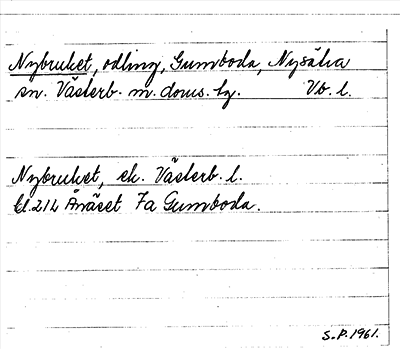 Nybruket, odling, Gumboda, Nysätra
sn. Västerb. m. doms. hg. Vb. l.
Nybruket, ek. Västerb. l.
bl. 214 Ånäset 7a Gumboda.
S.P. 1961.